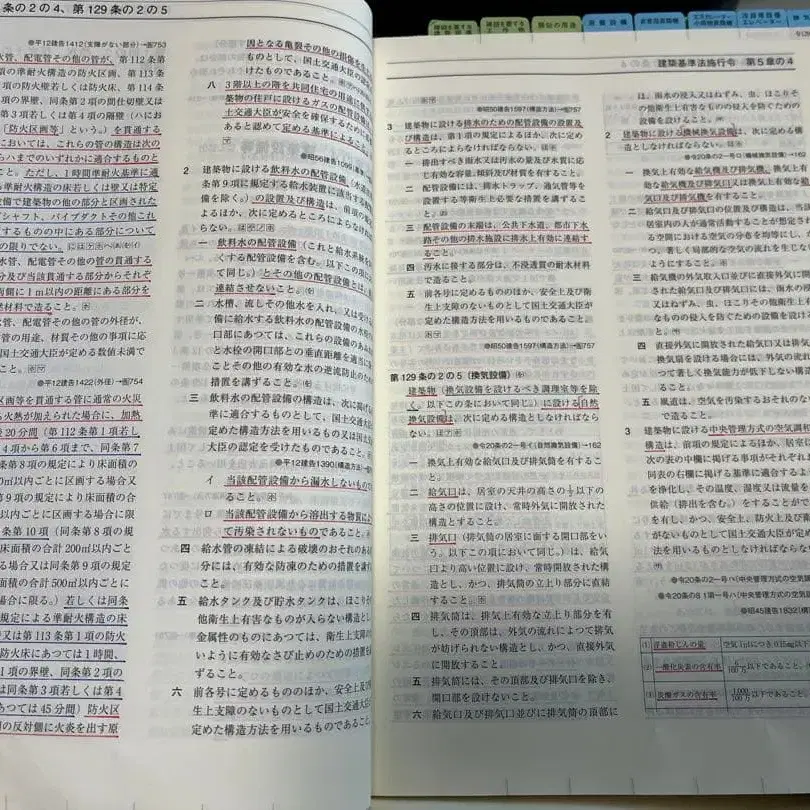 条の2の4、第129条の2の5
●平12建告1412(支障がない部分)→告753
水管、配電管その他の管が、第112条第
の準耐火構造の防火区画、第113条
若しくは防火床、第114条
の界壁、同条第2項の間仕切壁又は
3項若しくは第4項の隔壁(ハにお
「防火区画等」という。)を貫通する
においては、これらの管の構造は次の
らハまでのいずれかに適合するものと
こと。ただし、1時間準耐火基準に適
耐火構造の床若しくは壁又は特定
設備で建築物の他の部分と区画された
シャフト、パイプダクトその他これ
するものの中にある部分について
の限りでない。
水管、配電管その他の管の貫通する
分及び当該貫通する部分からそれぞ
両側に1m以内の距離にある部分を
燃材料で造ること。
水管、配電管その他の管の外径が、
管の用途、材質その他の事項に応
国土交通大臣が定める数値未満で
こと。
●平12建告1422(外径)→告754
区画等を貫通する管に通常の火災
る火熱が加えられた場合に、加熱
後20分間(第112条第1項若し
4項から第6項まで、同条第7
第8項の規定により床面積の
0㎡以内ごとに区画する場合又
第9項の規定により床面積の合
以内ごとに区画する場合に限
条第10項(同条第8項の規
床面積の合計200㎡以内ごと
る場合又は同条第9項の規定
面積の合計500㎡以内ごとに
場合に限る。)若しくは同条
規定による準耐火構造の床
又は第113条第1項の防火
防火床にあつては1時間、
1項の界壁、同条第2項の
は同条第3項若しくは第4
あつては45分間)防火区
の反対側に火炎を出す原
因となる亀裂その他の損傷を
ものとして、国土交通大臣の
けたものであること。
八 3階以上の階を共同住宅の用途に供する
築物の住戸に設けるガスの配管設備は
土交通大臣が安全を確保するために必要
あると認めて定める基準によること。
●昭56建告1099
2 建築物に設ける飲料水の配管設備(水道
条第9項に規定する給水装置に該当する
備を除く。)の設置及び構造は、前項の規
よるほか、次に定めるところによらなければ
らない。
一 飲料水の配管設備(これと給水系統を
くする配管設備を含む。以下この項に
て同じ。)とその他の配管設備とは、直
連結させないこと。
二 水槽、流しその他水を入れ、又は受ける
備に給水する飲料水の配管設備の水
口部にあつては、これらの設備のあふ
と水栓の開口部との垂直距離を適当に
ことその他の有効な水の逆流防止のた
措置を講ずること。
三 飲料水の配管設備の構造は、次に掲げる
準に適合するものとして、国土交通大
定めた構造方法を用いるもの又は国土
大臣の認定を受けたものであること。
●平12建告1390(構造方法)→
イ 当該配管設備から漏水しないもので
ること。
ロ 当該配管設備から溶出する物質によ
て汚染されないものであること。
四 給水管の凍結による破壊のおそれのある
分には、有効な防凍のための措置を講
こと。
五 給水タンク及び貯水タンクは、ほこりそ
他衛生上有害なものが入らない構造とし
金属性のものにあつては、衛生上支障の
いように有効なさび止めのための措置を
ずること。
六 前各号に定めるもののほか、安全上及
生上支障のないものとして国土交通大臣
定めた構造方法を用いるものであること
建築基準法施行令 第5章の4
●昭50建告1597(構造方法)→告757
3 建築物に設ける排水のための配管設備の設置及
び構造は、第1項の規定によるほか、次に定め
るところによらなければならない。
一 排出すべき雨水又は汚水の量及び水質に応
じ有効な容量、傾斜及び材質を有すること。
二 配管設備には、排水トラップ、通気管等を
設置する等衛生上必要な措置を講ずるこ
と。
三 配管設備の末端は、公共下水道、都市下水
路その他の排水施設に排水上有効に連結す
ること。
四 汚水に接する部分は、不浸透質の耐水材料
で造ること。
五 前各号に定めるもののほか、安全上及び衛
生上支障のないものとして国土交通大臣が
定めた構造方法を用いるものであること。
●昭50建告1597(構造方法)→告757
第129条の2の5(換気設備)
建築物(換気設備を設けるべき調理室等を除
く。以下この条において同じ。)に設ける自然
換気設備は、次に定める構造としなければなら
ない。
●令20条の2一号イ(自然換気設備)→162
一 換気上有効な給気口及び排気筒を有するこ
と。
二 給気口は、居室の天井の高さの1/2以下の
高さの位置に設け、常時外気に開放された
構造とすること。
三 排気口(排気筒の居室に面する開口部をい
う。以下この項において同じ。)は、給気
口より高い位置に設け、常時開放された構
造とし、かつ、排気筒の立上り部分に直結
すること。
四 排気筒は、排気上有効な立上り部分を有
し、その頂部は、外気の流れによつて排気
が妨げられない構造とし、かつ、直接外気
に開放すること。
五 排気筒には、その頂部及び排気口を除き、
開口部を設けないこと。
六 給気口及び排気口並びに排気筒の頂部に
は、雨水の浸入又はねずみ、虫、ほこりそ
の他衛生上有害なものの侵入を防ぐための
設備を設けること。
2 建築物に設ける機械換気設備は、次に定める構
造としなければならない。
●令20条の2一号ロ(機械換気設備)→162
一 換気上有効な給気機及び排気機、換気上有
効な給気機及び排気口又は換気上有効な給
気口及び排気機を有すること。
二 給気口及び排気口の位置及び構造は、当該
居室内の人が通常活動することが想定され
る空間における空気の分布を均等にし、か
つ、著しく局部的な空気の流れを生じない
ようにすること。
三 給気機の外気取り入口並びに直接外気に開
された給気口及び排気口には、雨水の浸
又はねずみ、虫、ほこりその他衛生上有
なものの侵入を防ぐための設備を設ける
と。
四 直接外気に開放された給気口又は排気
換気扇を設ける場合には、外気の流れ
つて著しく換気能力が低下しない構造
こと。
五 風道は、空気を汚染するおそれのない
で造ること。
3 建築物に設ける中央管理方式の空気調和
構造は、前項の規定によるほか、居室に
次の表の中欄に掲げる事項がそれぞれ
同表の右欄に掲げる基準に適合するよ
を浄化し、その温度、湿度又は流量を
供給(排出を含む。)をすることがで
を有し、かつ、安全上、防火上及び衛
がないものとして国土交通大臣が定め
法を用いるものとしなければならな
●令20条の2一号ハ(中央管理方式の空気調
●令20条の8 1第一号ハ(中央管理方式の空気
●昭45建告1832(構
(1) 浮遊粉じんの量 空気1㎥につき0.15mg以下
(2) 一酸化炭素の含有率 6/100万以下であること。
(3) 炭酸ガスの含有率 1,000/100万以下であること。